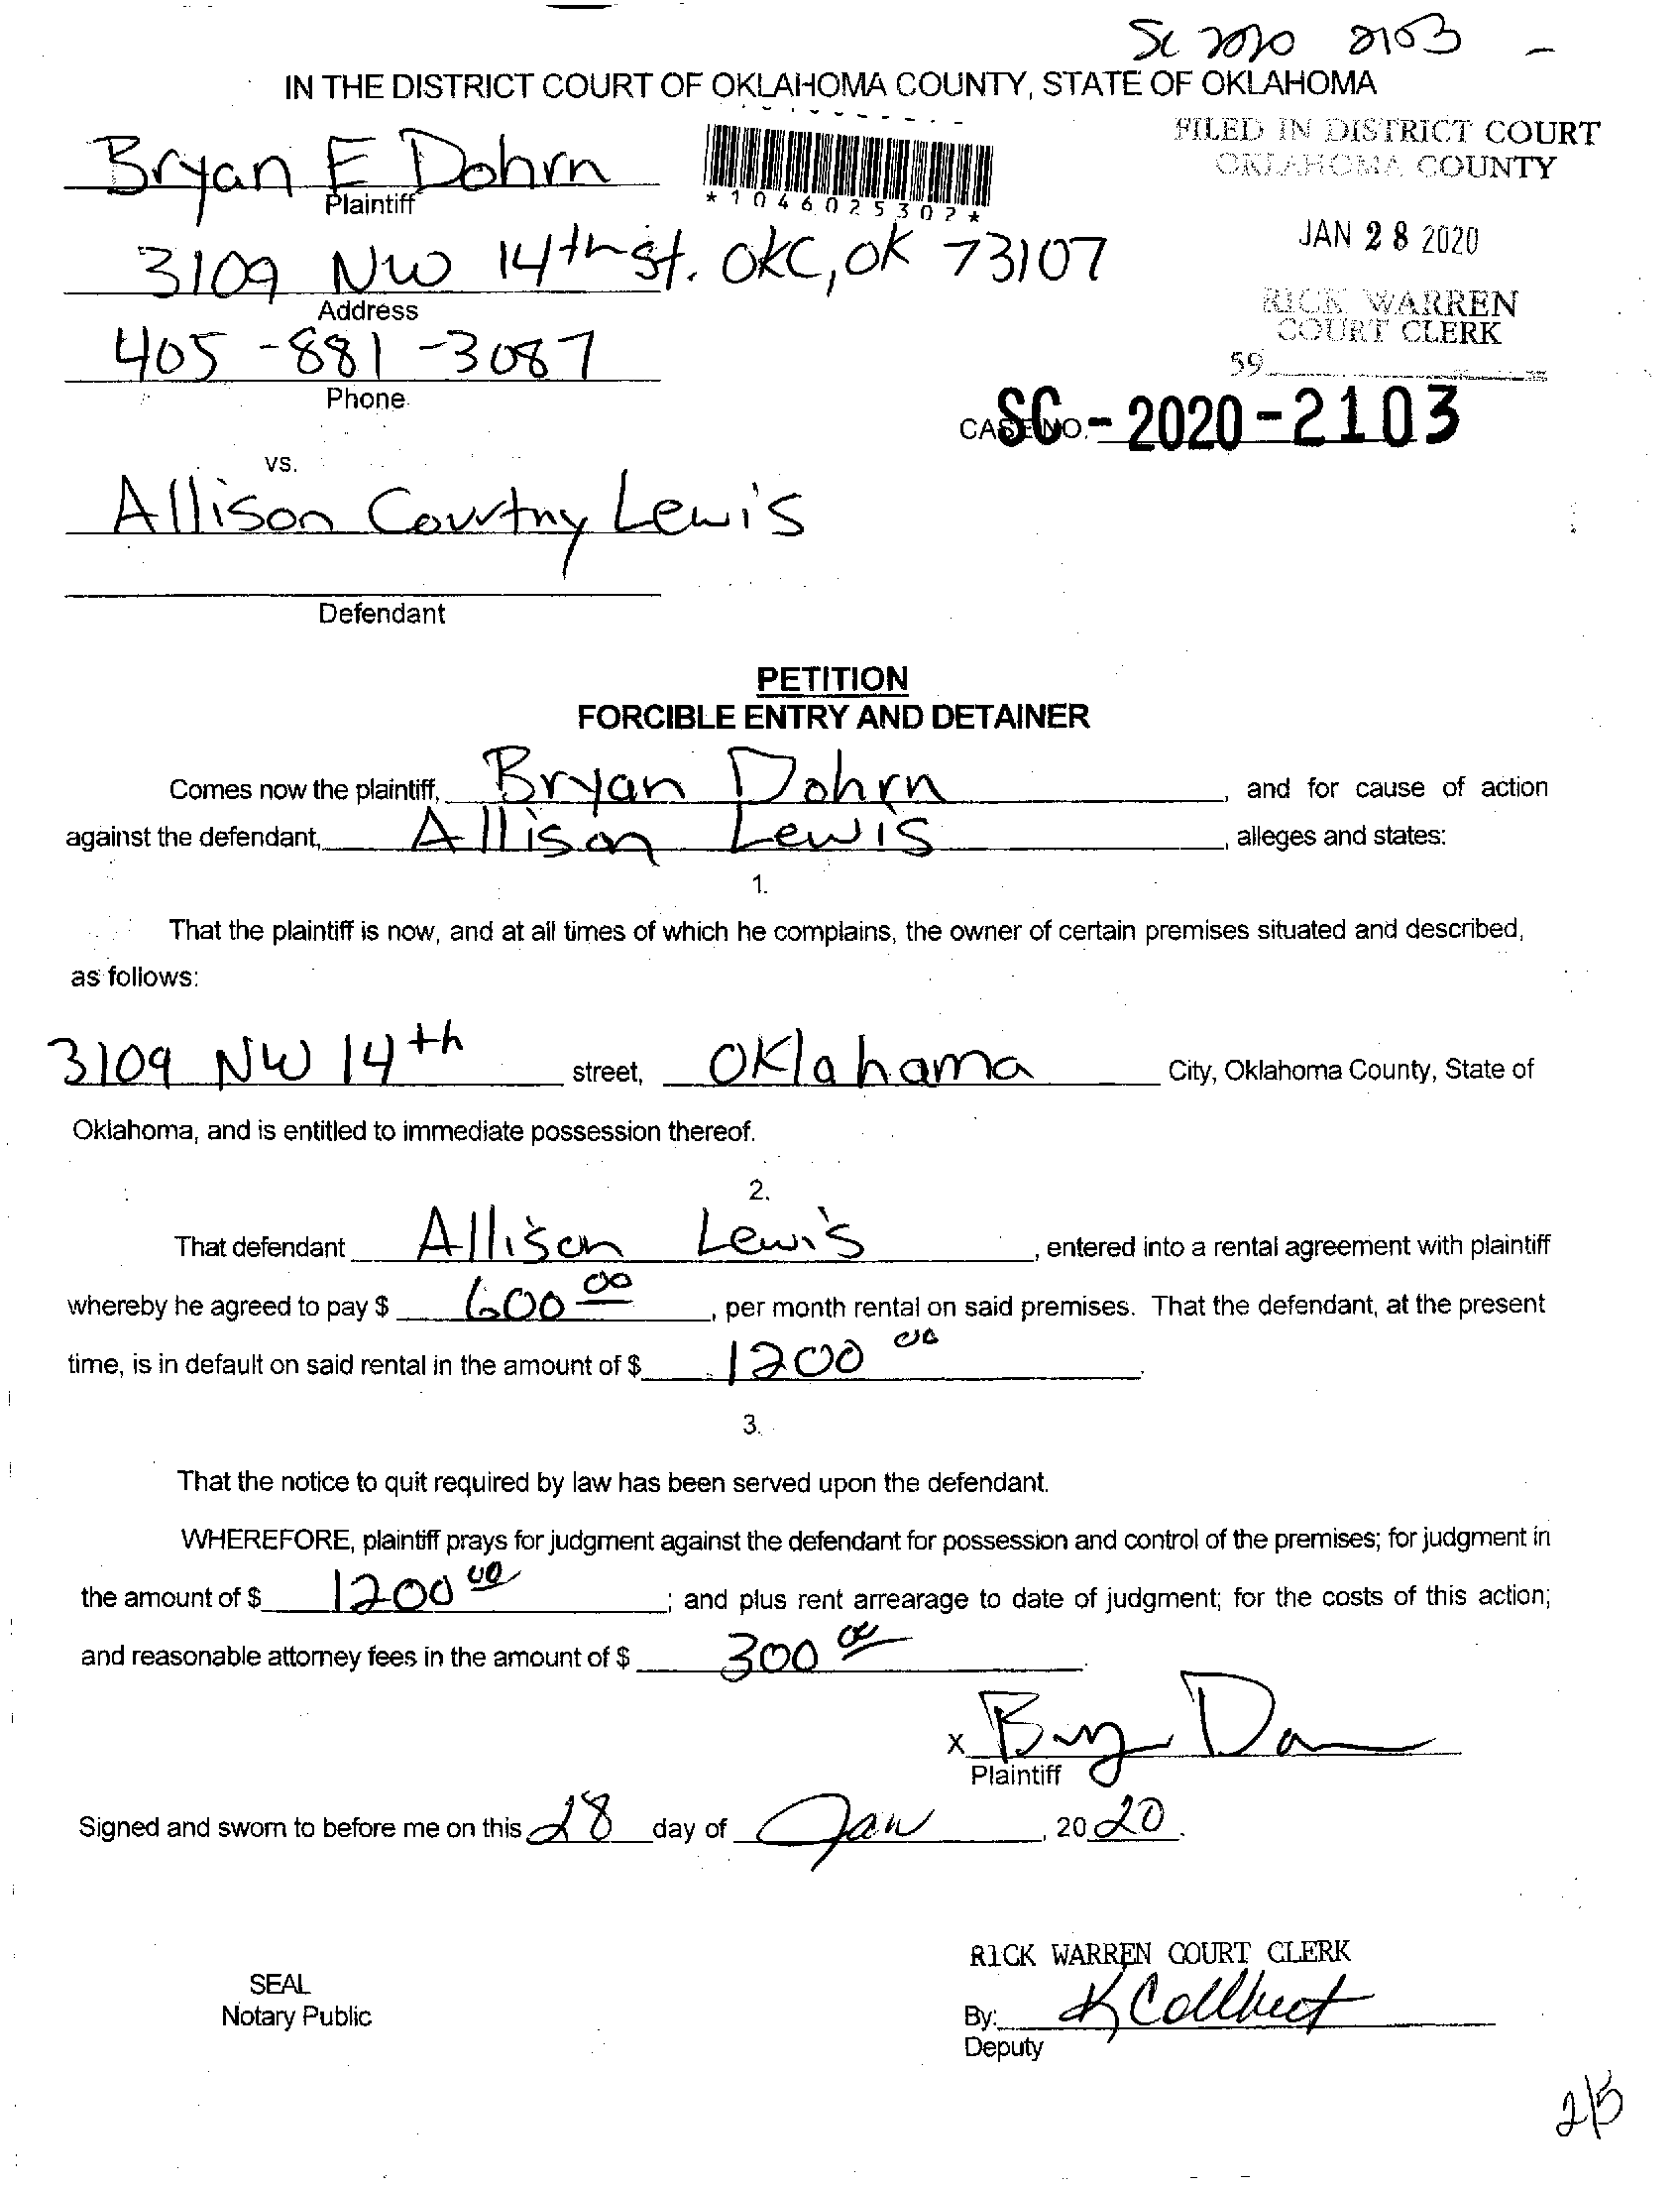 SC 2020 2103 -
IN THE DISTRICT COURT OF OKLAHOMA COUNTY, STATE OF OKLAHOMA
FILED IN DISTRICT COURT
OKLAHOMA COUNTY
Bryan E Dohrn
Plaintiff
*1046025302*
JAN 28 2020
3109 NW 14th st. OKC, OK 73107
Address
RICK WARREN
COURT CLERK
405-881-3087
59
Phone
CASE NO. SC-2020-2103
vs.
Allison Courtny Lewis
Defendant
PETITION
FORCIBLE ENTRY AND DETAINER
Comes now the plaintiff, Bryan Dohrn, and for cause of action
against the defendant, Allison Lewis, alleges and states:
1.
That the plaintiff is now, and at all times of which he complains, the owner of certain premises situated and described,
as follows:
3109 NW 14th street, Oklahama City, Oklahoma County, State of
Oklahoma, and is entitled to immediate possession thereof.
2.
That defendant Allison Lewis, entered into a rental agreement with plaintiff
whereby he agreed to pay $ 600 00, per month rental on said premises. That the defendant, at the present
time, is in default on said rental in the amount of $ 1200 00.
3.
That the notice to quit required by law has been served upon the defendant.
WHEREFORE, plaintiff prays for judgment against the defendant for possession and control of the premises; for judgment in
the amount of $ 1200 00; and plus rent arrearage to date of judgment; for the costs of this action;
and reasonable attorney fees in the amount of $ 300 00.
X
Plaintiff
Signed and sworn to before me on this 28 day of Jan, 2020.
RICK WARREN COURT CLERK
SEAL
Notary Public
By: K Collbert
Deputy
2/5